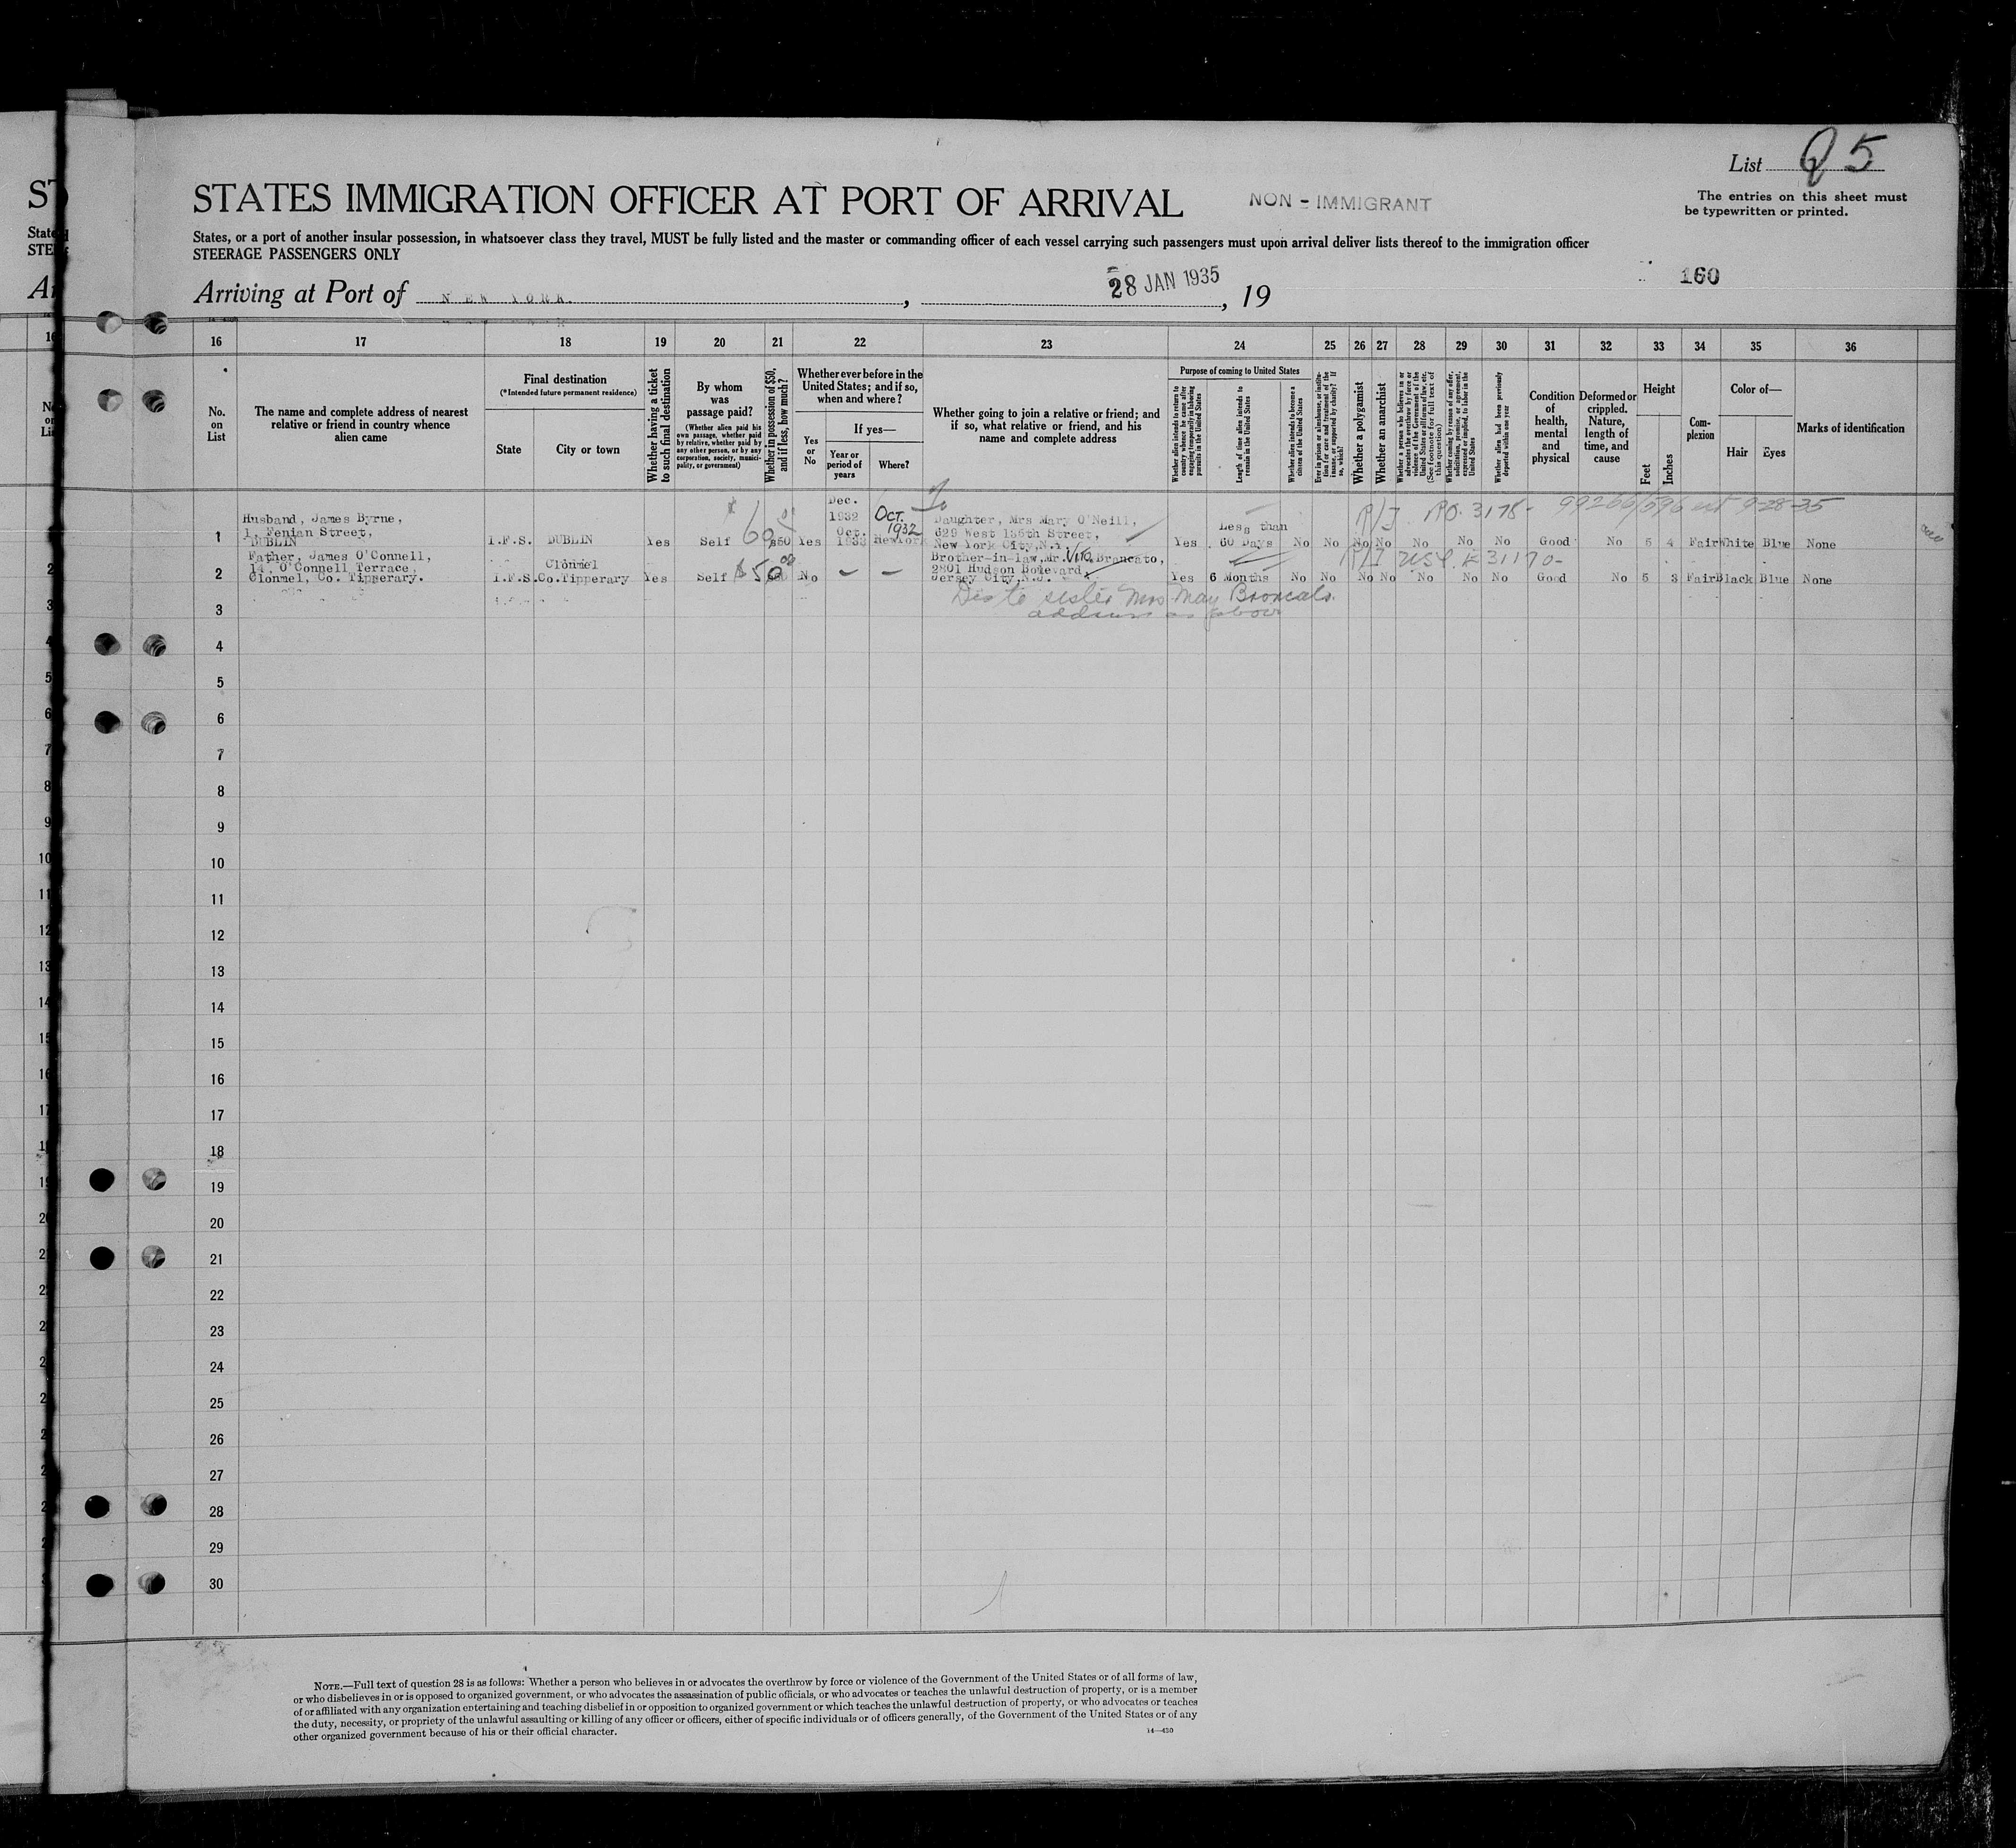 List Q 5
STATES IMMIGRATION OFFICER AT PORT OF ARRIVAL
NON - IMMIGRANT
The entries on this sheet must
be typewritten or printed.
States, or a port of another insular possession, in whatsoever class they travel, MUST be fully listed and the master or commanding officer of each vessel carrying such passengers must upon arrival deliver lists thereof to the immigration officer
STEERAGE PASSENGERS ONLY
160
Arriving at Port of NEW YORK, 28 JAN 1935, 19
16 17 18 19 20 21 22 23 24 25 26 27 28 29 30 31 32 33 34 35 36
No. on List
The name and complete address of nearest
relative or friend in country whence
alien came
Final destination
(*Intended future permanent residence)
State
City or town
Whether having a ticket
to such final destination
By whom
was
passage paid?
(Whether alien paid his
own passage, whether paid
by relative, whether paid by
any other person, or by any
corporation, society, munici-
pality, or government)
Whether in possession of $50,
and if less, how much?
Whether ever before in the
United States; and if so,
when and where?
Yes
or
No
If yes—
Year or
period of
years
Where?
Whether going to join a relative or friend; and
if so, what relative or friend, and his
name and complete address
Purpose of coming to United States
Whether alien intends to return to
country whence he came after
engaging temporarily in laboring
pursuits in the United States
Length of time alien intends to
remain in the United States
Whether alien intends to become a
citizen of the United States
Ever in prison or almshouse, or institu-
tion for care and treatment of the
insane, or supported by charity? If
so, which?
Whether a polygamist
Whether an anarchist
Whether a person who believes in or
advocates the overthrow by force or
violence of the Government of the
United States or all forms of law, etc.
(See footnote for full text of
this question)
Whether coming by reason of any offer,
solicitation, promise, or agreement,
expressed or implied, to labor in the
United States
Whether alien had been previously
deported within one year
Condition
of
health,
mental
and
physical
Deformed or
crippled.
Nature,
length of
time, and
cause
Height
Feet
Inches
Com-
plexion
Color of—
Hair
Eyes
Marks of identification
1
Husband, James Byrne,
1, Fenian Street,
DUBLIN
I.F.S. DUBLIN Yes Self $60 $50 Yes
Dec.
1932
Oct.
1933
OCT.
1932
New York
Daughter, Mrs Mary O'Neill,
629 West 135th Street,
New York City, N.Y.
Yes
Less than
60 Days
No No No No No No No Good No 5 4 Fair White Blue None
R/I 3178- 99266/596 9-28-35
2
Father, James O'Connell,
14, O'Connell Terrace,
Clonmel, Co. Tipperary.
I.F.S.
Clonmel
Co.Tipperary
Yes Self $50 No — —
Brother-in-law, Mr. Vito Brancato,
2801 Hudson Boulevard,
Jersey City, N.J.
Yes 6 Months No No No No No No No Good No 5 3 Fair Black Blue None
R/I 31170-
Des to sister Mrs May
address as above
3
4
5
6
7
8
9
10
11
12
13
14
15
16
17
18
19
20
21
22
23
24
25
26
27
28
29
30
NOTE.—Full text of question 28 is as follows: Whether a person who believes in or advocates the overthrow by force or violence of the Government of the United States or of all forms of law,
or who disbelieves in or is opposed to organized government, or who advocates the assassination of public officials, or who advocates or teaches the unlawful destruction of property, or is a member
of or affiliated with any organization entertaining and teaching disbelief in or opposition to organized government or which teaches the unlawful destruction of property, or who advocates or teaches
the duty, necessity, or propriety of the unlawful assaulting or killing of any officer or officers, either of specific individuals or of officers generally, of the Government of the United States or of any
other organized government because of his or their official character.
14—430